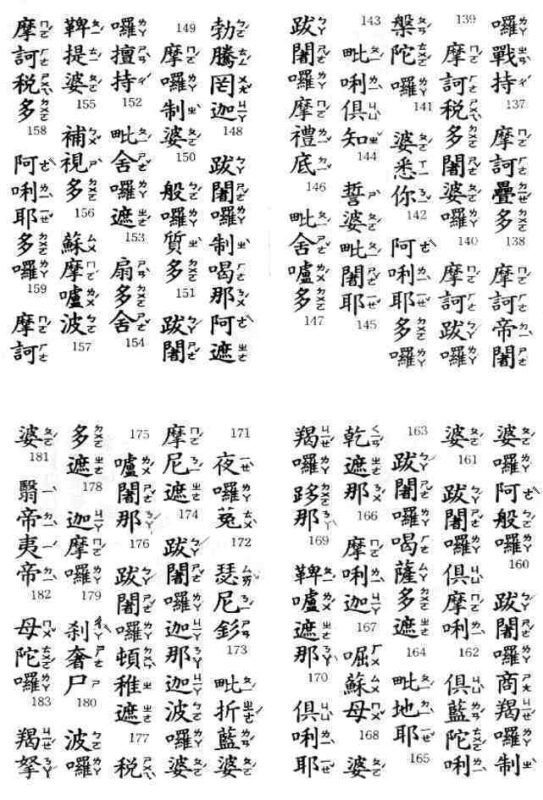 囉戰持 137 摩訶疊多 138 摩訶帝闍
139 摩訶稅多闍婆囉 140 摩訶跋囉
槃陀囉 141 婆悉你 142 阿唎耶多囉
143 毗唎俱知 144 誓婆毗闍耶 145
跋闍囉摩禮底 146 毗舍嚧多 147
勃騰罔迦 148 跋闍囉制喝那阿遮
149 摩囉制婆 150 般囉質多 151 跋闍
囉擅持 152 毗舍囉遮 153 扇多舍 154
鞞提婆 155 補視多 156 蘇摩嚧波 157
摩訶稅多 158 阿唎耶多囉 159 摩訶
婆囉阿般囉 160 跋闍囉商羯囉制
婆 161 跋闍囉俱摩唎 162 俱藍陀唎
163 跋闍囉喝薩多遮 164 毗地耶 165
乾遮那 166 摩唎迦 167 啒蘇母 168 婆
羯囉跢那 169 鞞嚧遮那 170 俱唎耶
171 夜囉菟 172 瑟尼釤 173 毗折藍婆
摩尼遮 174 跋闍囉迦那迦波囉婆
175 嚧闍那 176 跋闍囉頓稚遮 177 稅
多遮 178 迦摩囉 179 剎奢尸 180 波囉
婆 181 翳帝夷帝 182 母陀囉 183 羯拏